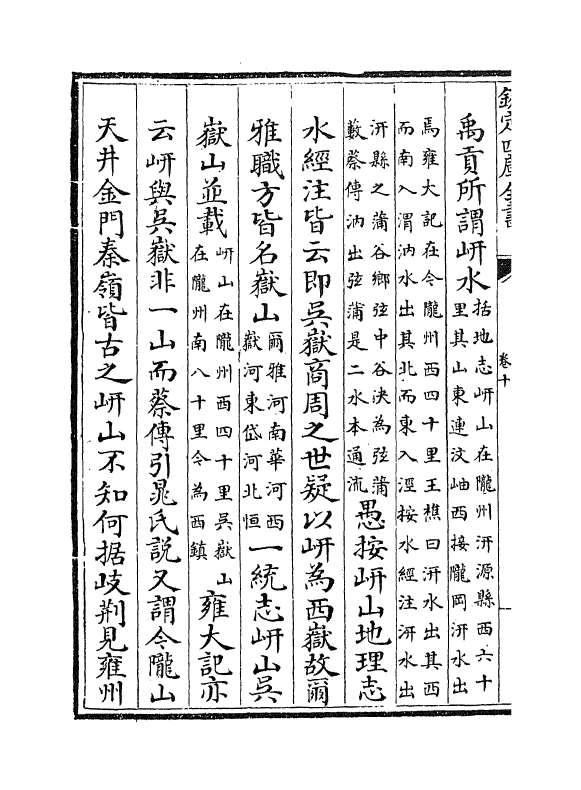 欽定四庫全書
卷十
禹貢所謂岍水
括地志岍山在隴州汧源縣西六十
里其山東連汶岫西接隴岡汧水出
焉雍大記在今隴州西四十里王樵曰汧水出其西
而南入渭汭水出其北而東入涇按水經注汧水出
汧縣之蒲谷鄉弦中谷決為弦蒲
藪蔡傳汭出弦蒲是二水本通流
愚按岍山地理志
水經注皆云即吳嶽商周之世疑以岍為西嶽故爾
雅職方皆名嶽山
爾雅河南華河西
嶽河東岱河北恒
一統志岍山吳
嶽山並載
岍山在隴州西四十里吳嶽山
在隴州南八十里今為西鎮
雍大記亦
云岍與吳嶽非一山而蔡傳引晁氏說又謂今隴山
天井金門秦嶺皆古之岍山不知何据岐荆見雍州